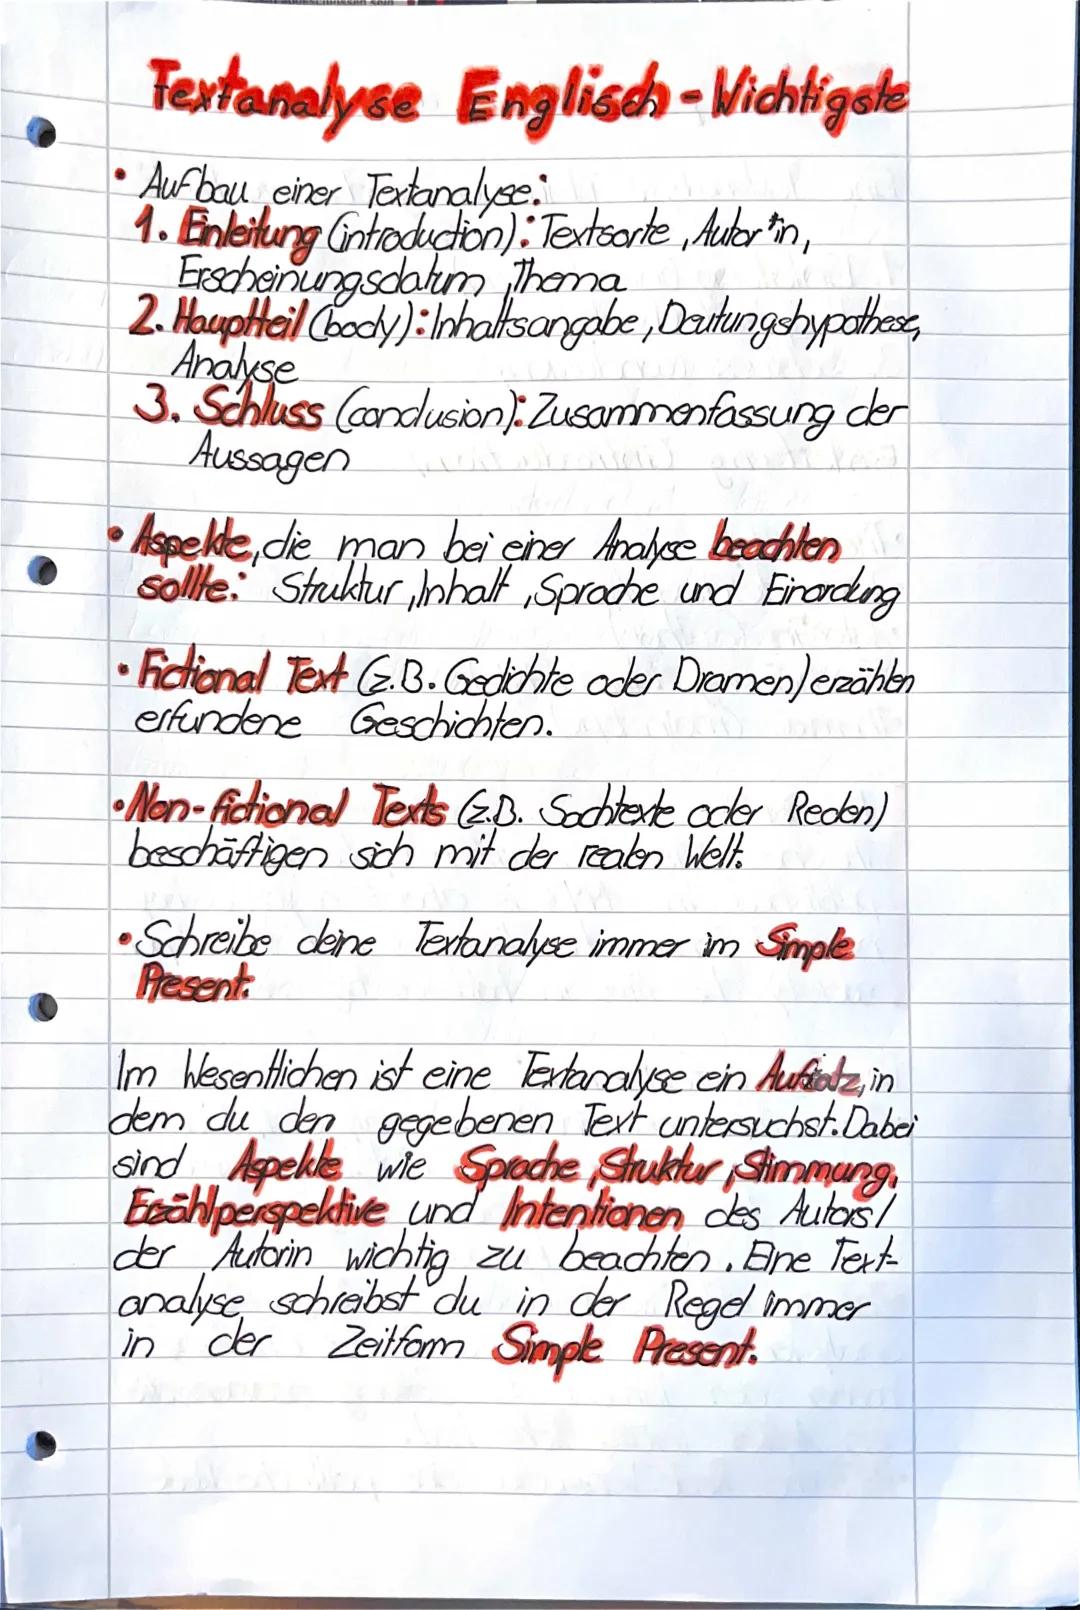 Textanalyse Englisch - Wichtigste
• Aufbau einer Textanalyse:
1. Einleitung (introduction): Textsorte, Autor*in,
Erscheinungsdatum, Thema
2. Hauptteil (body): Inhaltsangabe, Deutungshypothese,
Analyse
3. Schluss (conclusion): Zusammenfassung der
Aussagen
• Aspekte, die man bei einer Analyse beachten
sollte: Struktur, Inhalt, Sprache und Einordung
• Fictional Text (z.B. Gedichte oder Dramen) erzählen
erfundene Geschichten.
• Non-fictional Texts (z.B. Sachtexte oder Reden)
beschäftigen sich mit der realen Welt.
• Schreibe deine Textanalyse immer im Simple
Present.
Im Wesentlichen ist eine Textanalyse ein Aufsatz, in
dem du den gegebenen Text untersuchst. Dabei
sind Aspekte wie Sprache, Struktur, Stimmung,
Erzählperspektive und Intentionen des Autors/
der Autorin wichtig zu beachten. Eine Text-
analyse schreibst du in der Regel immer
in der Zeitform Simple Present.